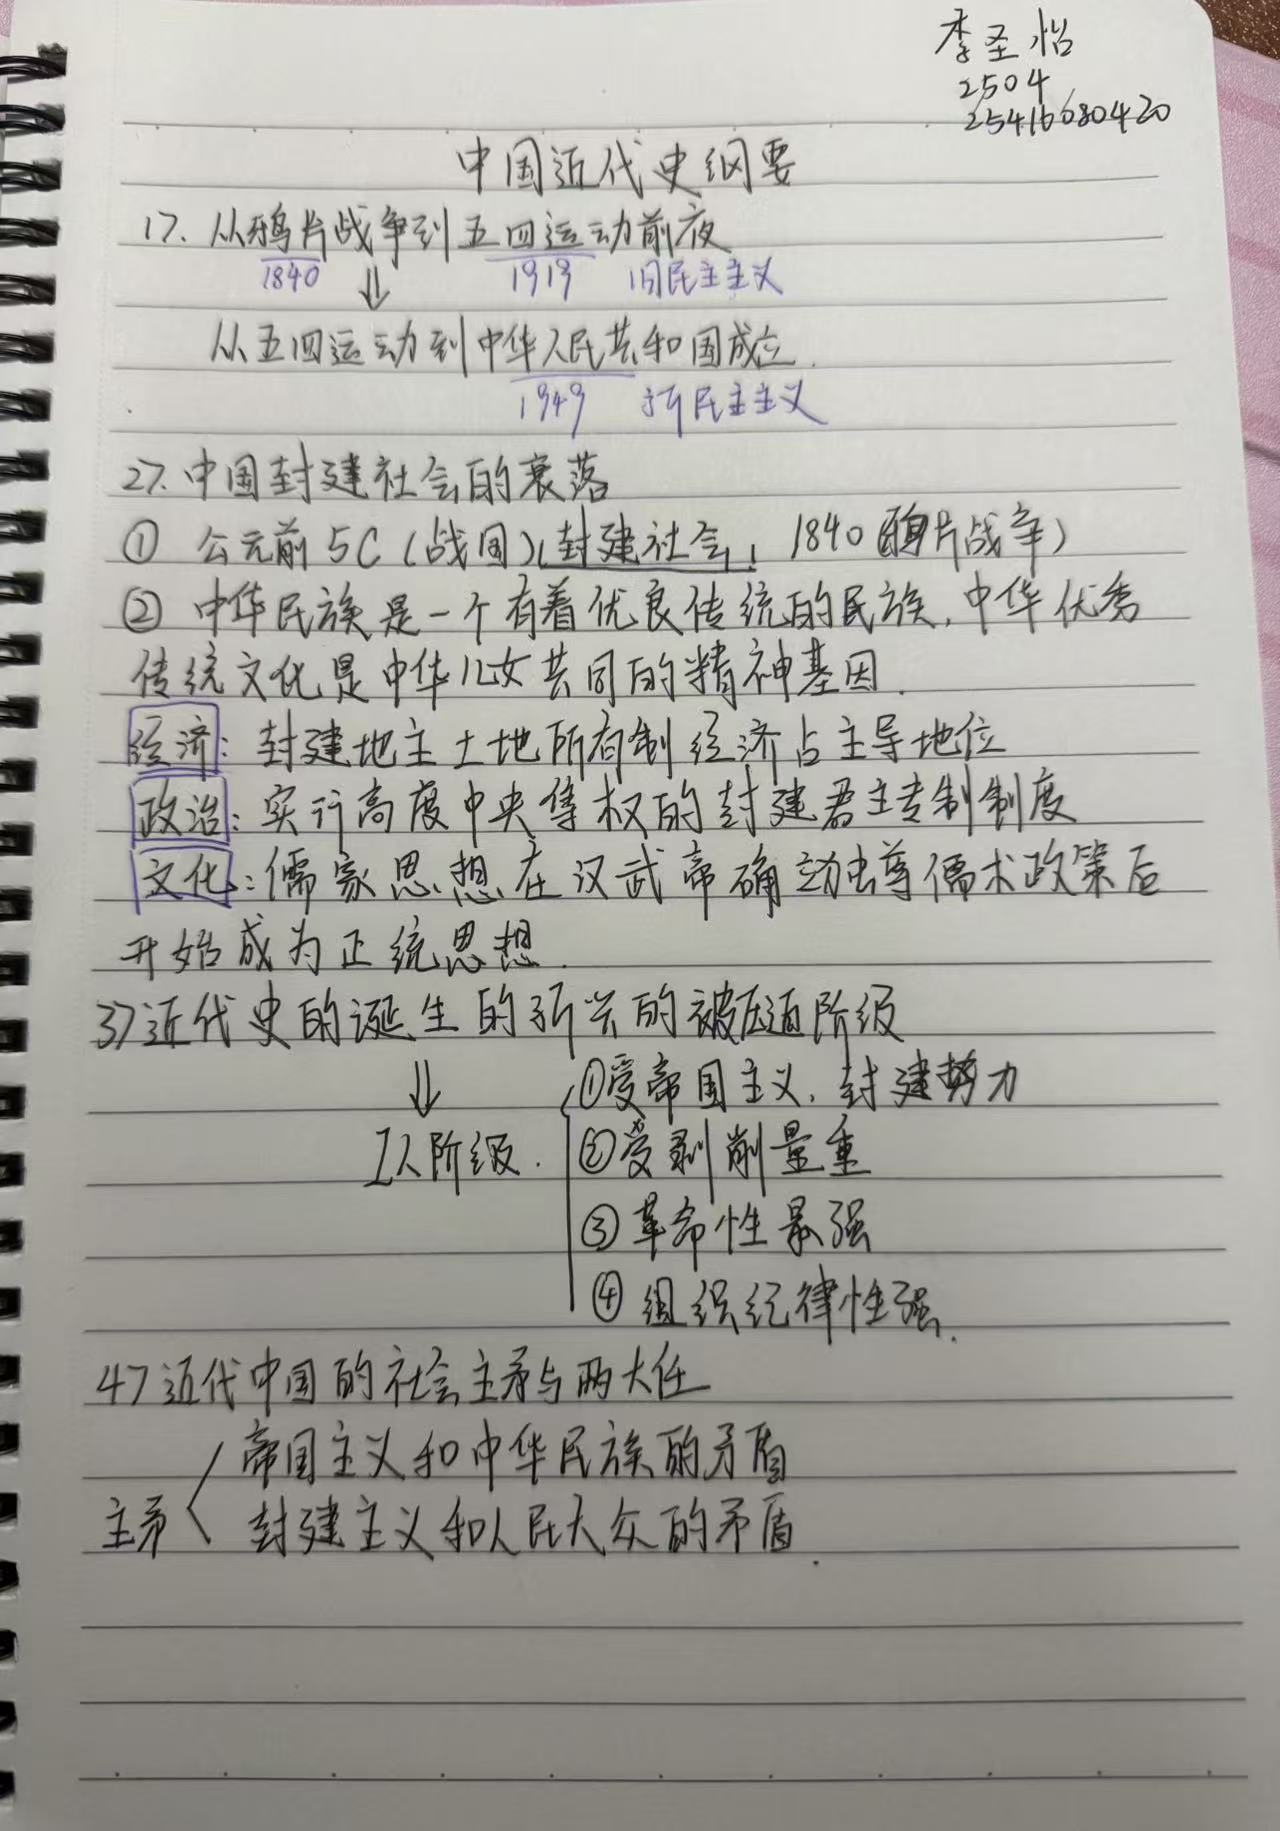 李圣怡
2504
25416680420
中国近代史纲要
1>. 从鸦片战争到五四运动前夜
1840 1919 旧民主主义
⇓
从五四运动到中华人民共和国成立.
1949 新民主主义
2>. 中国封建社会的衰落
① 公元前5C(战国)(封建社会, 1840(鸦片战争)
② 中华民族是一个有着优良传统的民族,中华优秀
传统文化是中华儿女共同的精神基因.
经济: 封建地主土地所有制经济占主导地位
政治: 实行高度中央集权的封建君主专制制度
文化: 儒家思想在汉武帝确尊儒术政策后
开始成为正统思想.
3>近代史的诞生的新兴的被压迫阶级
⇓ ①受帝国主义,封建势力
工人阶级. ②受剥削量重
③革命性最强
④组织纪律性强.
4>近代中国的社会主矛与两大任
帝国主义和中华民族的矛盾
主矛
封建主义和人民大众的矛盾.